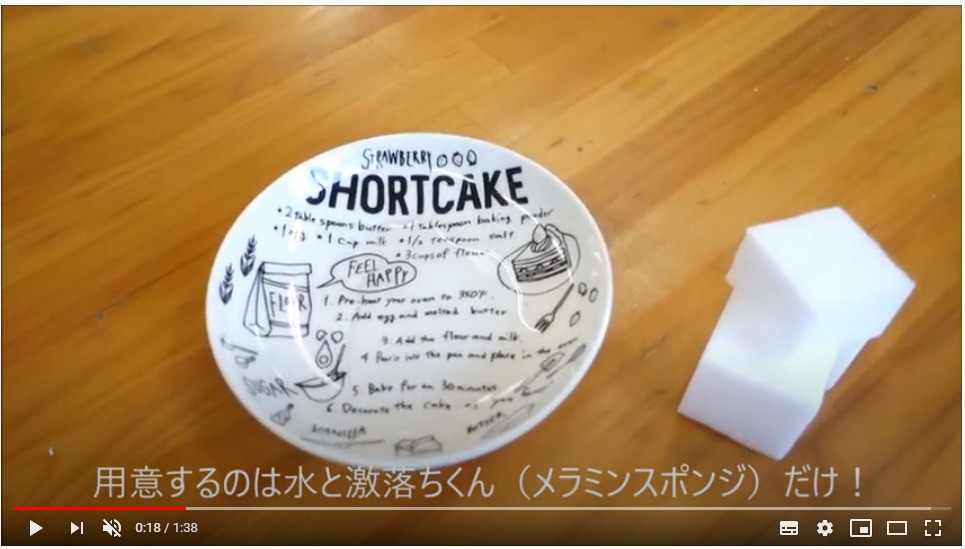 STRAWBERRY
SHORTCAKE
• 2 table spoons butter • 1 tablespoon baking powder
• 1 egg • 1 cup milk • 1/2 teaspoon salt
• 3 cups of flour
FEEL
HAPPY
FLOUR
1. Pre-heat your oven to 350°F.
2. Add egg and melted butter.
3. Add the flour and milk.
4. into the pan and place in the oven
SUGAR
5. Bake for 30 minutes.
6. Decorate the cake as you
VANILLA
BUTTER
用意するのは水と激落ちくん（メラミンスポンジ）だけ！
0:18 / 1:38